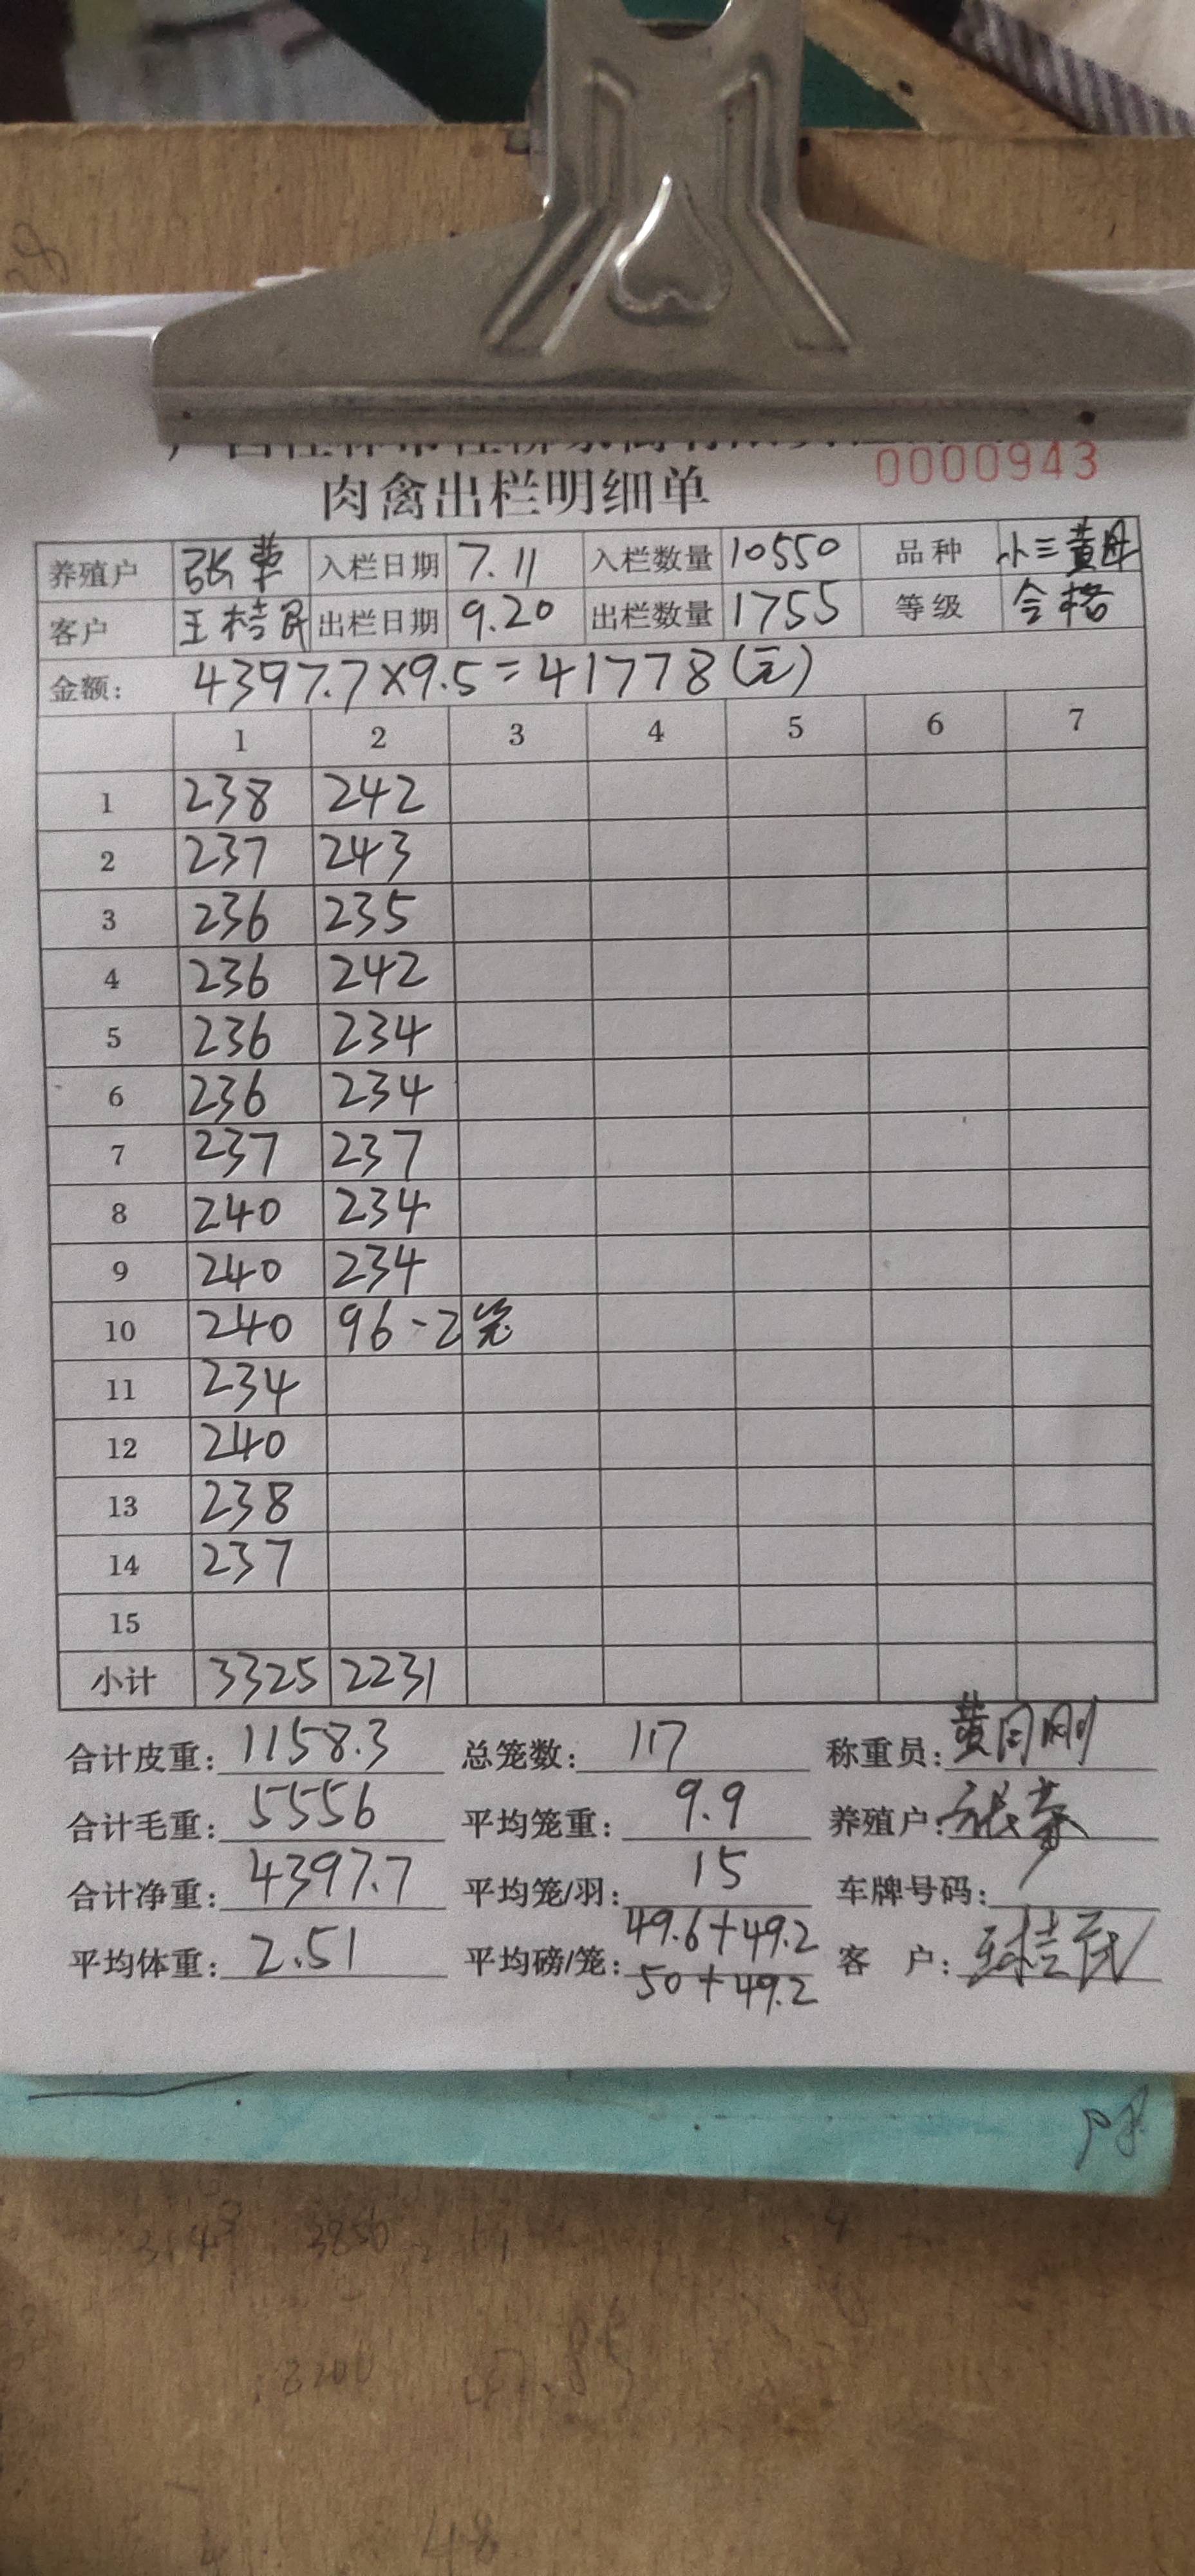 0000943
肉禽出栏明细单
养殖户 张荣 入栏日期 7.11 入栏数量 10550 品种 小三黄母
客户 王桔民 出栏日期 9.20 出栏数量 1755 等级 合格
金额: 4397.7×9.5=41778(元)
1 2 3 4 5 6 7
1 238 242
2 237 243
3 236 235
4 236 242
5 236 234
6 236 234
7 237 237
8 240 234
9 240 234
10 240 96-2笼
11 234
12 240
13 238
14 237
15
小计 3325 2231
合计皮重: 1158.3 总笼数: 117 称重员: 黄刚
合计毛重: 5556 平均笼重: 9.9 养殖户: 张荣
合计净重: 4397.7 平均笼/羽: 15 车牌号码:
平均体重: 2.51 平均磅/笼: 49.6+49.2 客 户: 王桔民
50+49.2